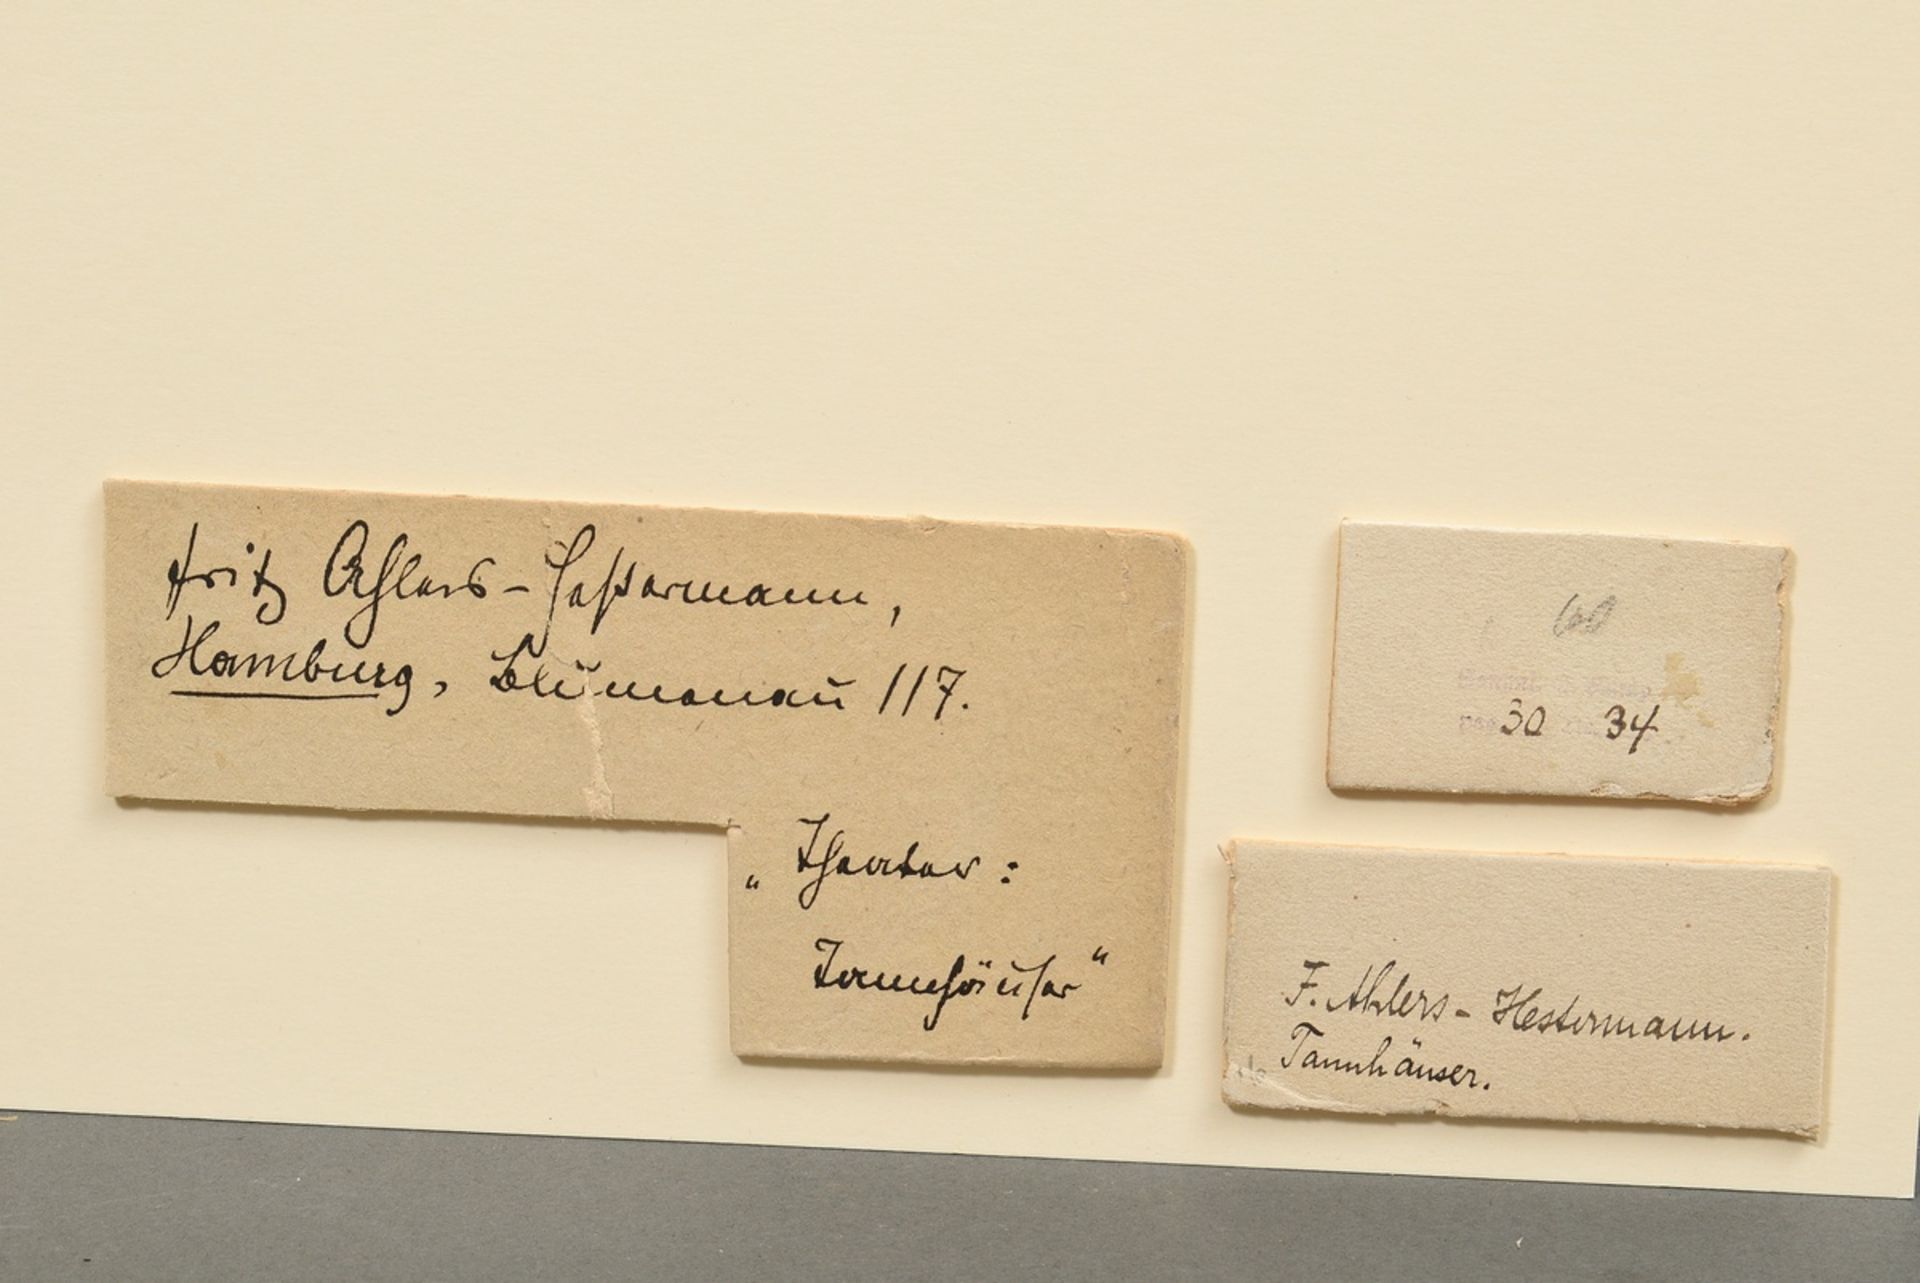 Fritz Ahlers-Hestermann,
Hamburg, Blumenau 117.
„Theater:
Tannhäuser“
30 34
F. Ahlers-Hestermann.
Tannhäuser.